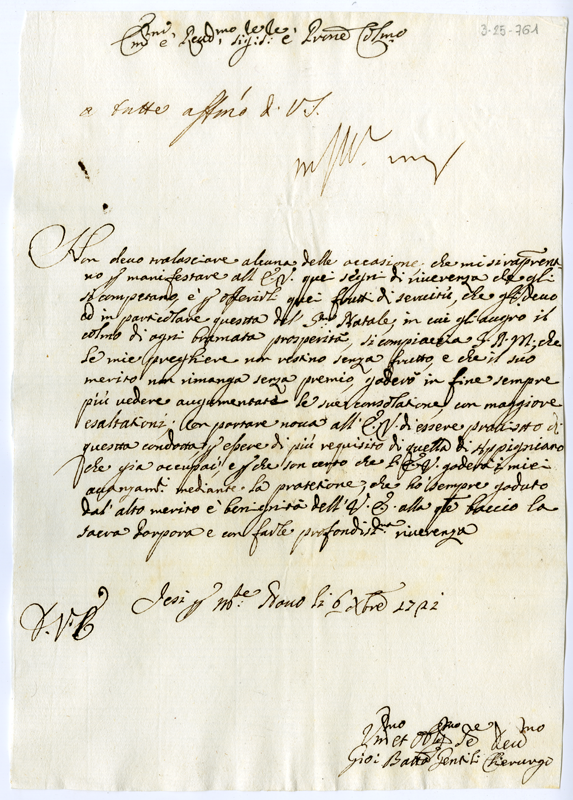 3-25-761
Em.mo e Rev.mo Sig.re e Prone Col.mo
a tutte
di V.S.
Non devo tralasciare alcuna delle occasione, che mi si rapresenta
no p manifestare all'E.V. quei segni di riverenza che gli
si competano, e p offerirli quei frutti di servitù, che gli devo
ed in particolare questa del S.mo Natale, in cui gli auguro il
colmo di ogni bramata prosperità, si compiaccia che
le mie preghiere non restino senza frutto e che il suo
merito non rimanga senza premio, goderò in fine sempre
più vedere augumentate le sue consolatione, con maggiore
esaltationi; Con portare nova all'E.V. di essere provisto di
questa condotta p essere di più requisito di quella di Appignano
che già occupai e p che son certo che l'E.V. goderà i miei
avanzamti mediante la protetione, che ho sempre goduto
dal alto merito e benignità dell'V.E. alla qle baccio la
sacra Porpora e con farle profondis.ma riverenza
D. V. E.
Jesi p Mte Novo li 6 Xbre 1721
Um.mo et Obb.mo Se.re Dev.mo
Gio: Batta Gentili Cherurgo